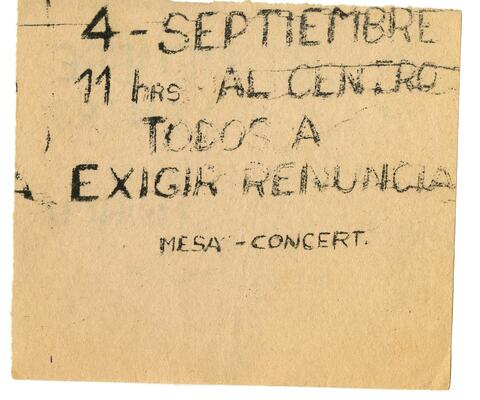 4 - SEPTIEMBRE
11 hrs AL CENTRO
TODOS A
EXIGIR RENUNCIA
MESA - CONCERT.